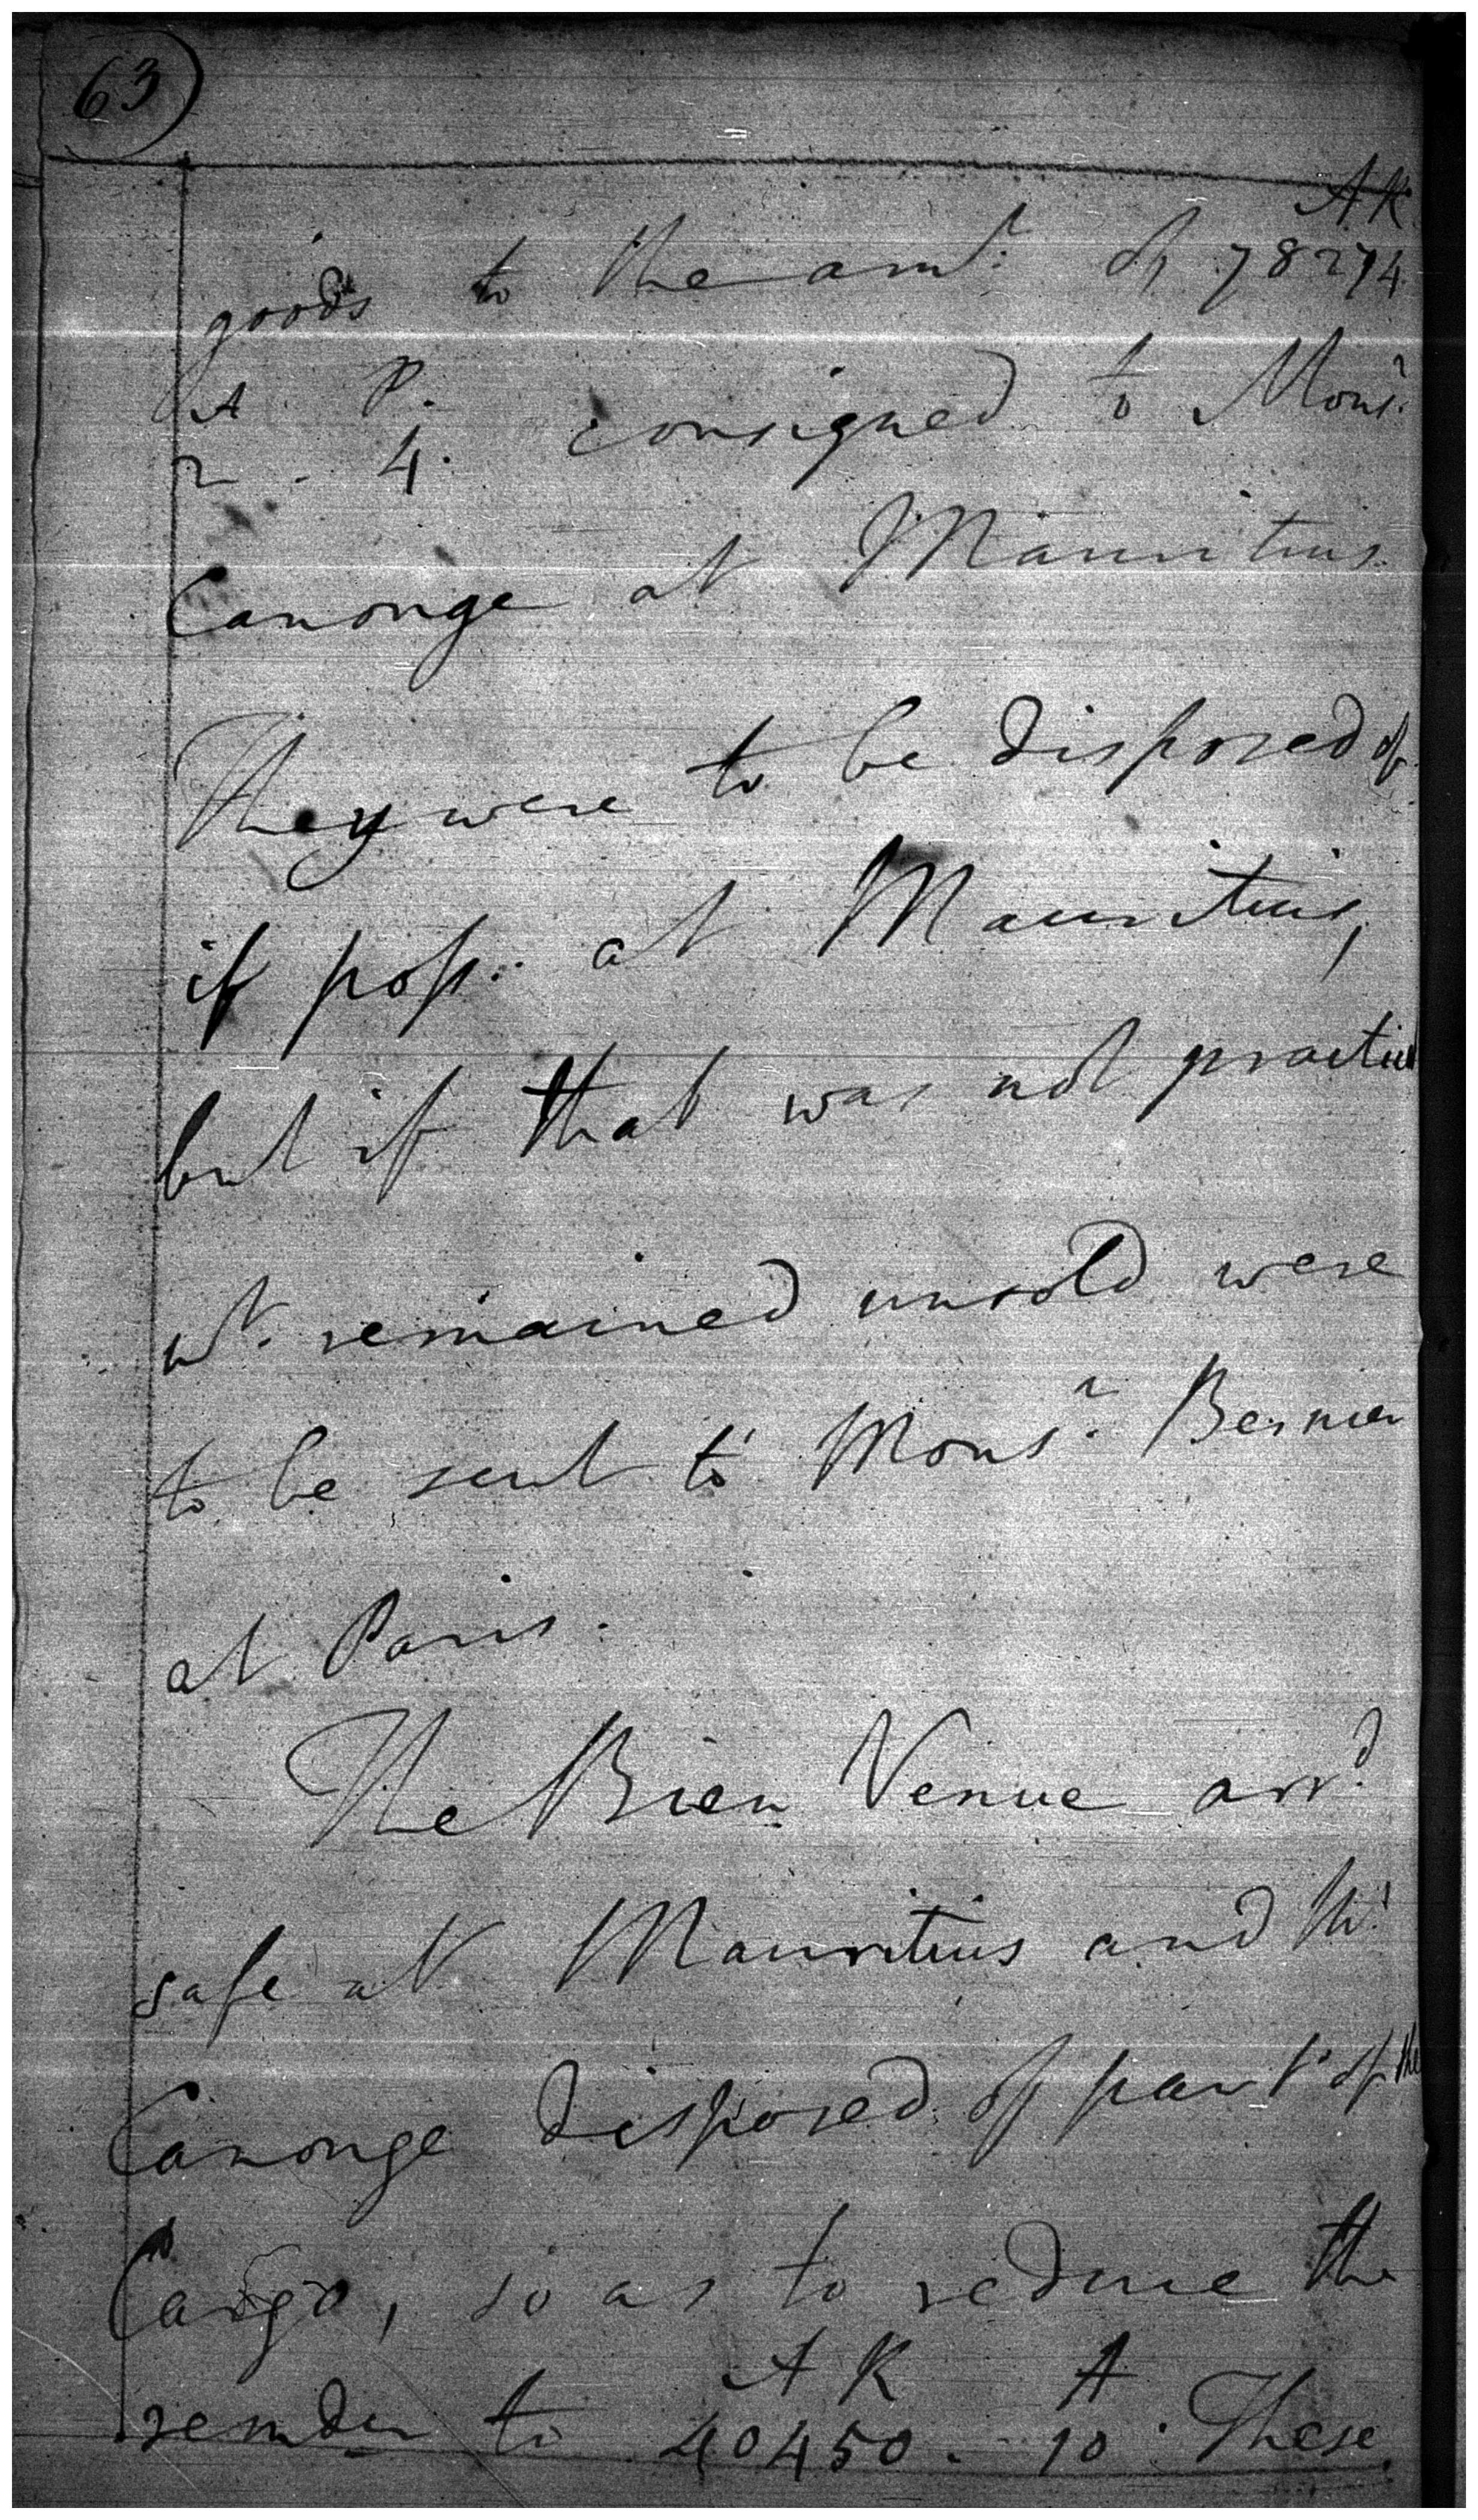 63
A R
goods to the amt. of 78274
A. P.
2. 4. consigned to Monsr.
Canonge at Mauritius.
They were to be disposed of
if poss. at Mauritius,
but if that was not practic
wt. remained unsold were
to be sent to Monsr. Bernier
at Paris.
The Bien Venue arrd.
safe at Mauritius and
Canonge disposed of part of the
Cargo, so as to reduce the
A R A
remder to 40450. 10. These